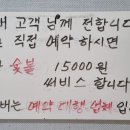 버 고객 님께 전합니다
직접 예약 하시면
숯불 15000원
써비스 합니다
버는 예약 대행 업체 입니